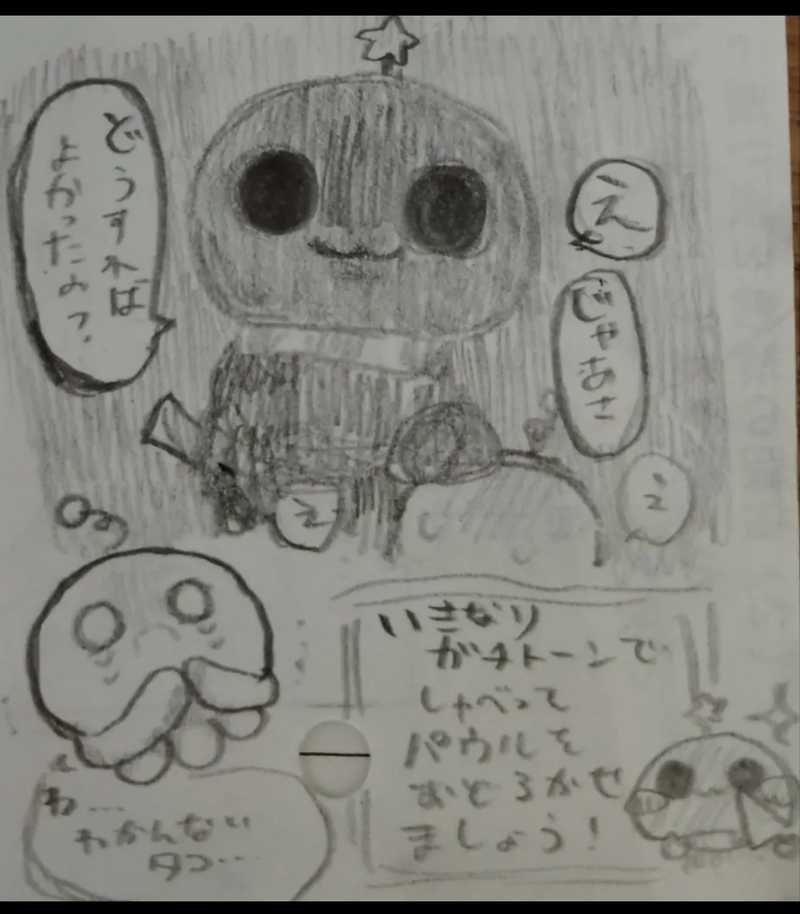 え
じゃあさ
え
え
どうすれば
よかったの？
わ…
わかんない
タコ…
いきなり
ガチトーンで
しゃべって
パウルを
おどろかせ
ましょう！